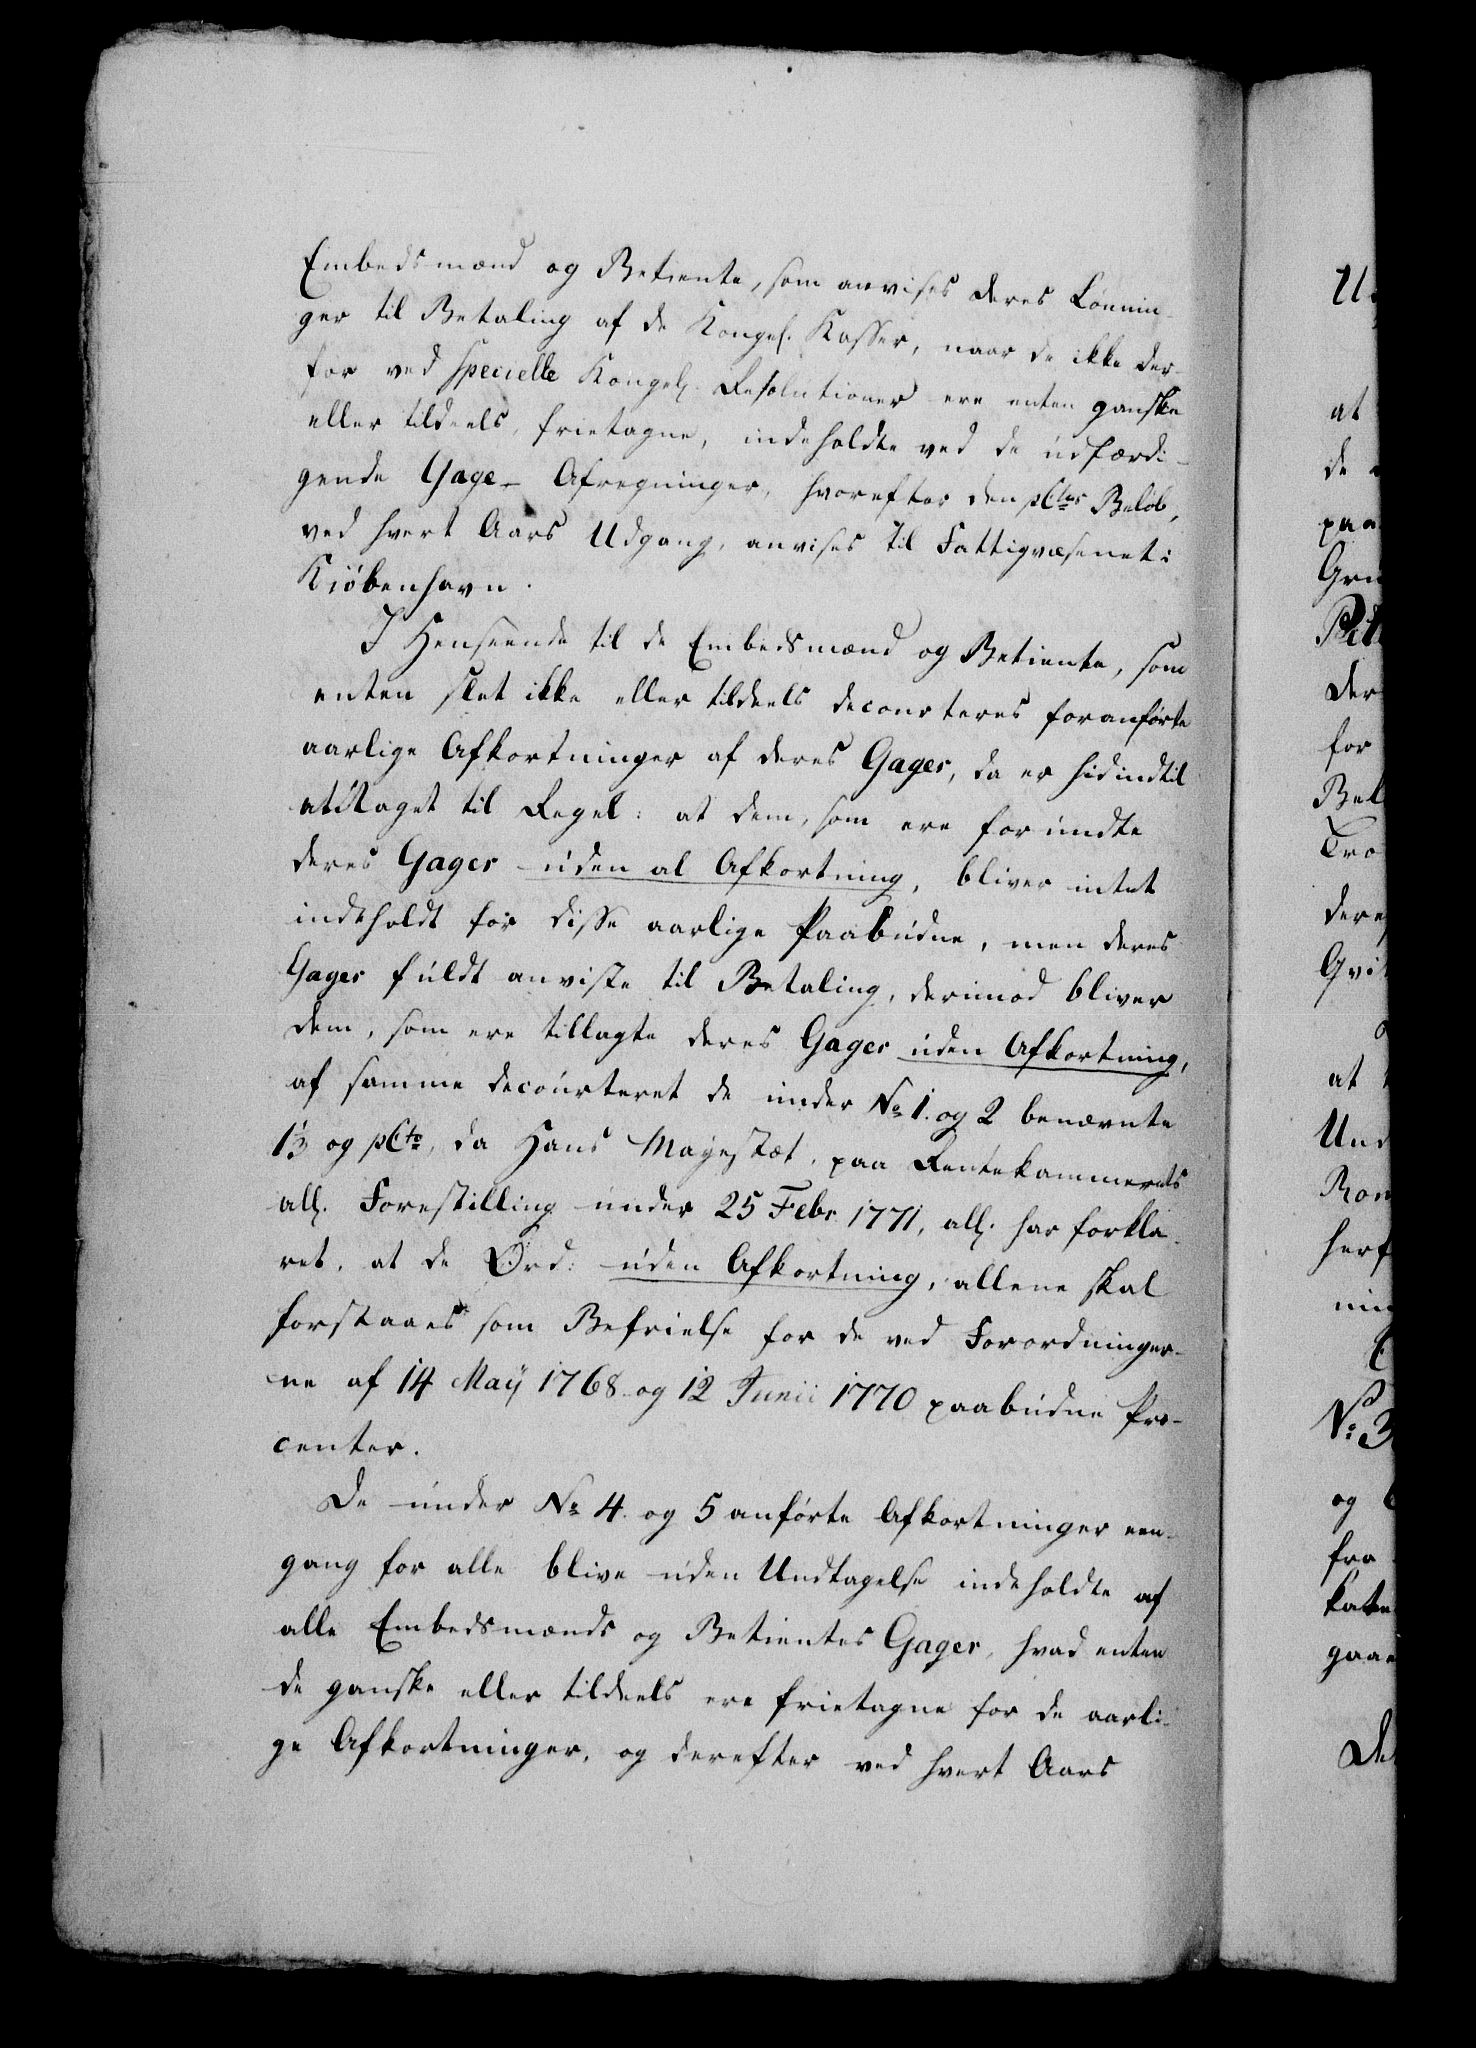 Embedsmænd og Betiente, som anvises deres Lønnin-
ger til Betaling af de Kongel. Kasser, naar de ikke der-
for ved specielle Kongel. Resolutioner ere enten ganske
eller tildeels, frietagne, indeholdte ved de udfærdi-
gende Gage-Afregninger, hvorefter den pCtos Beløb,
ved hvert Aars Udgang, anvises til Fattigvæsenet i
Kiøbenhavn.
I Henseende til de Embedsmænd og Betiente, som
enten slet ikke eller tildeels decourteres foranførte
aarlige Afkortninger af deres Gager, da er hidindtil
antaget til Regel: at dem, som ere forundte
deres Gager uden al Afkortning, bliver intet
indeholdt for disse aarlige Paabudne, men deres
Gager fuldt anviste til Betaling, derimod bliver
dem, som ere tillagte deres Gager uden Afkortning,
af samme decourteret de under No 1. og 2 benævnte
1⅓ og pCto, da Hans Mayestæt, paa Rentekammerets
all. Forestilling under 25 Febr. 1771, all. har forkla-
ret, at de Ord: uden Afkortning, allene skal
forstaaes som Befrielse for de ved Forordninger-
ne af 14 Maÿ 1768 og 12 Junii 1770 paabudne Pro-
center.
De under No 4. og 5 anførte Afkortninger een-
gang for alle blive uden Undtagelse indeholdte af
alle Embedsmænds og Betientes Gager, hvad enten
de ganske eller tildeels ere frietagne for de aarli-
ge Afkortninger, og derefter ved hvert Aars
at
de
paa
der
for
at
No 3
og
fra